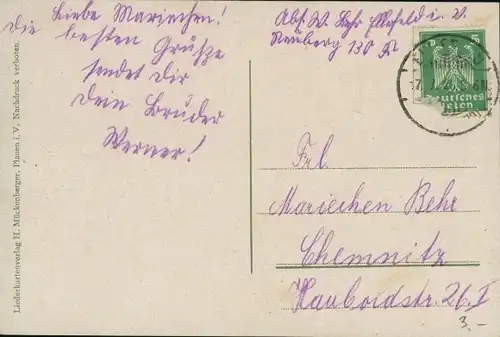 Liebe Mariechen!
Die besten Grüße
sendet dir
dein Bruder
Werner!
Abs. W. Behr Ellefeld i. V.
Neuberg 130
5
Deutsches
Reich
Frl.
Mariechen Behr
Chemnitz
Hauboldstr. 26. I
3.-
Liederkartenverlag H. Mückenberger, Plauen i. V. Nachdruck verboten.